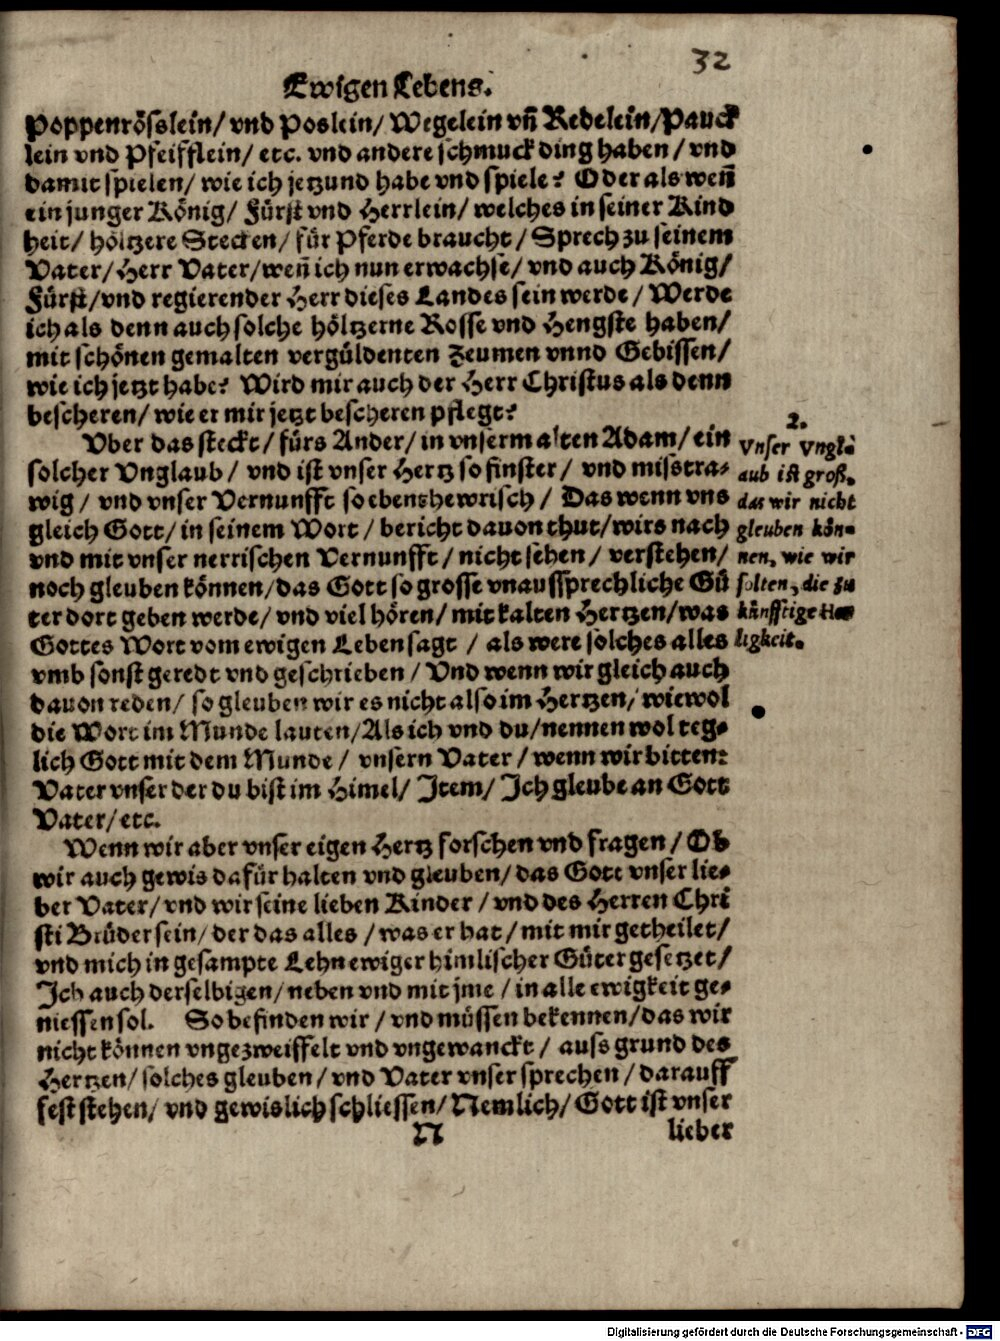 32
Ewigen Lebens.
Poppenrösslein/ vnd Poslein/ Wegelein vñ Redelein/ Pauck
lein vnd Pfeifflein/ etc. vnd andere schmuck ding haben/ vnd
damit spielen/ wie ich jetzund habe vnd spiele? Oder als weñ
ein junger König/ Fürst vnd Herrlein/ welches in seiner Kind
heit/ höltzere Stecken/ für Pferde braucht/ Sprech zu seinem
Vater/ Herr Vater/ weñ ich nun erwachse/ vnd auch König/
Fürst/ vnd regierender Herr dieses Landes sein werde/ Werde
ich als denn auch solche höltzerne Rosse vnd Hengste haben/
mit schönen gemalten vergüldenten Zeumen vnnd Gebissen/
wie ich jetzt habe? Wird mir auch der Herr Christus als denn
bescheren/ wie er mir jetzt bescheren pflegt?
Vber das steckt/ fürs Ander/ in vnserm alten Adam/ ein
solcher Vnglaub/ vnd ist vnser Hertz so finster/ vnd misstra-
wig/ vnd vnser Vernunfft so ebenthewrisch/ Das wenn vns
gleich Gott/ in seinem Wort/ bericht dauon thut/ wirs nach
vnd mit vnser nerrischen Vernunfft/ nicht sehen/ verstehen/
noch gleuben können/ das Gott so grosse vnaussprechliche Gü
ter dort geben werde/ vnd viel hören/ mit kalten Hertzen/ was
Gottes Wort vom ewigen Leben sagt/ als were solches alles
vmb sonst geredt vnd geschrieben/ Vnd wenn wir gleich auch
dauon reden/ so gleuben wir es nicht also im Hertzen/ wiewol
die Wort im Munde lauten/ Als ich vnd du/ nennen wol teg-
lich Gott mit dem Munde/ vnsern Vater/ wenn wir bitten:
Vater vnser der du bist im Himel/ Item/ Ich gleube an Gott
Vater/ etc.
Wenn wir aber vnser eigen Hertz forschen vnd fragen/ Ob
wir auch gewis dafür halten vnd gleuben/ das Gott vnser lie-
ber Vater/ vnd wir seine lieben Kinder/ vnd des Herren Chri
sti Brüder sein/ der das alles/ was er hat/ mit mir getheilet/
vnd mich in gesampte Lehn ewiger himlischer Güter gesetzet/
Ich auch derselbigen/ neben vnd mit jme/ in alle ewigkeit ge-
niessen sol. So befinden wir/ vnd müssen bekennen/ das wir
nicht können vngezweiffelt vnd vngewanckt/ auss grund des
Hertzen/ solches gleuben/ vnd Vater vnser sprechen/ darauff
fest stehen/ vnd gewislich schliessen/ Nemlich/ Gott ist vnser
N
lieber
2.
Vnser Vngl-
aub ist groß,
das wir nicht
gleuben kön-
nen, wie wir
solten, die zu
künfftige
ligkeit.
Digitalisierung gefördert durch die Deutsche Forschungsgemeinschaft - DFG